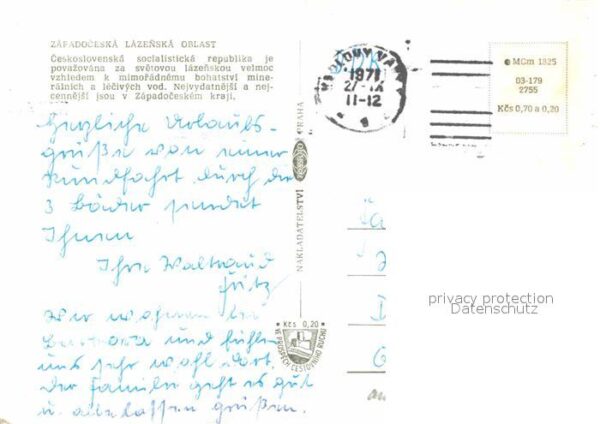 ZÁPADOČESKÁ LÁZEŇSKÁ OBLAST
Československá socialistická republika je
považována za světovou lázeňskou velmoc
vzhledem k mimořádnému bohatství mine-
rálních a léčivých vod. Nejvydatnější a nej-
cennější jsou v Západočeském kraji.
Herzliche Urlaubs-
grüße von einer
Rundfahrt durch die
3 Bäder sendet
Ihnen
Ihre Waltraud
Fritz
Wir wohnen bei
und fühlen
uns sehr wohl dort.
Der Familie geht es gut
u. alle lassen grüßen.
NAKLADATELSTVÍ
PRAHA
KARLOVY VARY
1971
27.IX
11-12
MCm 1825
03-179
2755
Kčs 0,70 a 0,20
Kčs 0,20
VE PROSPĚCH CESTOVNÍHO RUCHU
privacy protection
Datenschutz